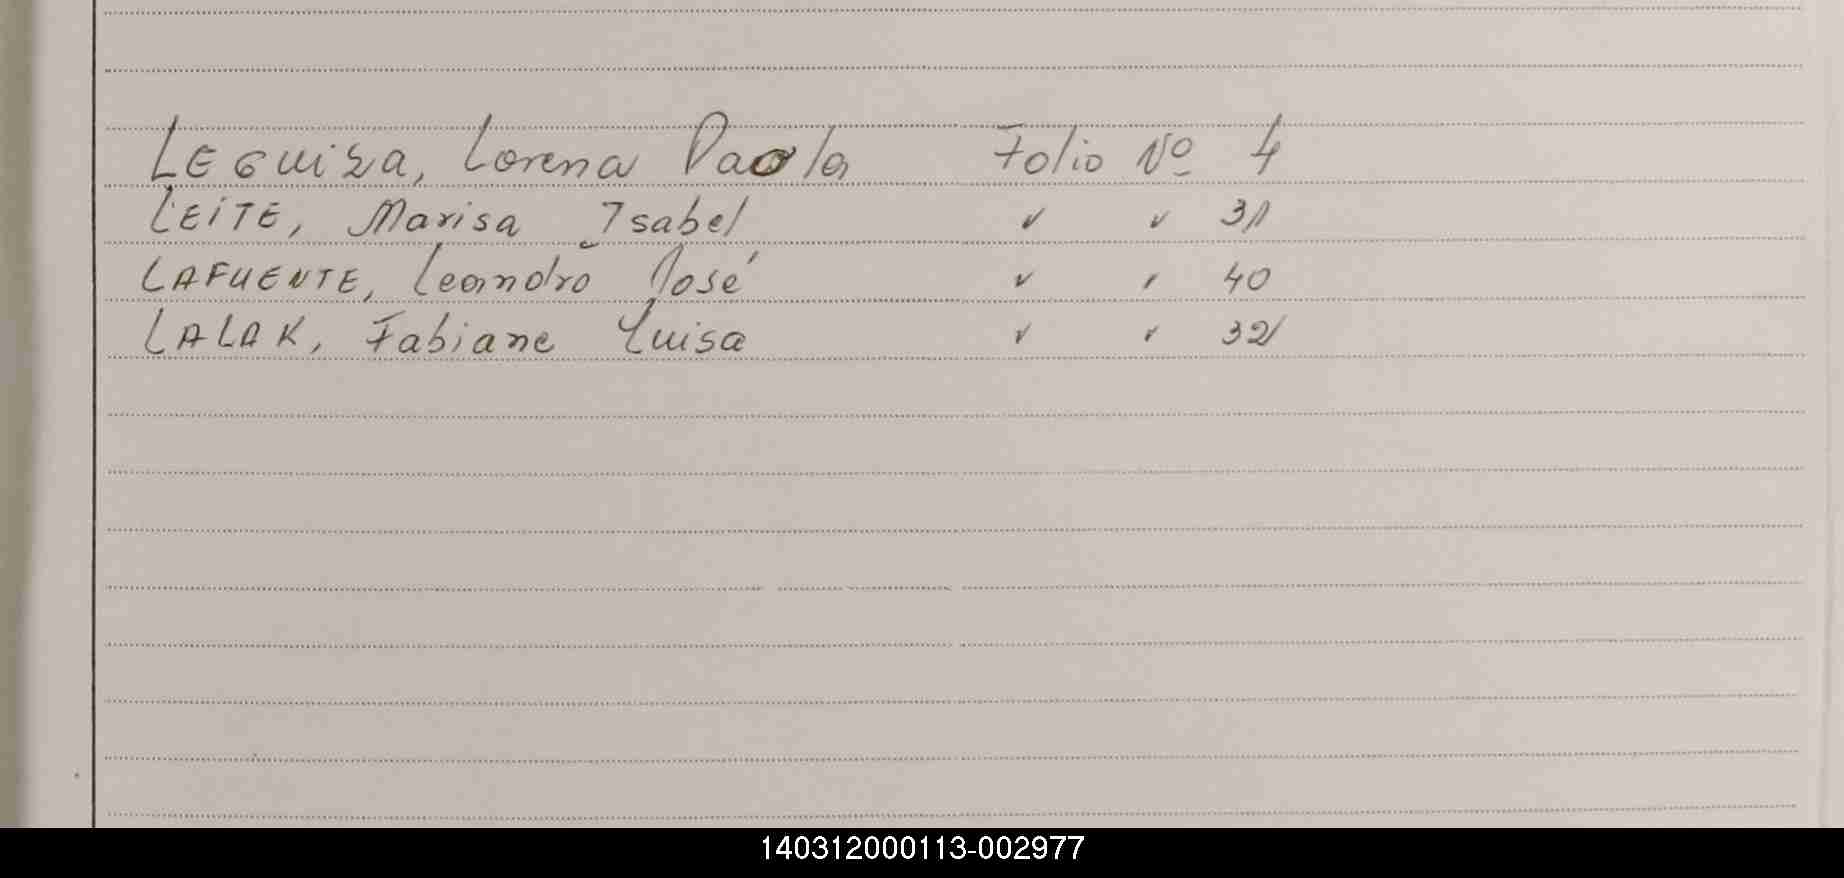 LEGUIZA, Lorena Paola Folio Nº 4
LEITE, Marisa Isabel ✓ ✓ 31
LAFUENTE, Leandro José ✓ ✓ 40
LALAK, Fabiane Luisa ✓ ✓ 32
140312000113-002977